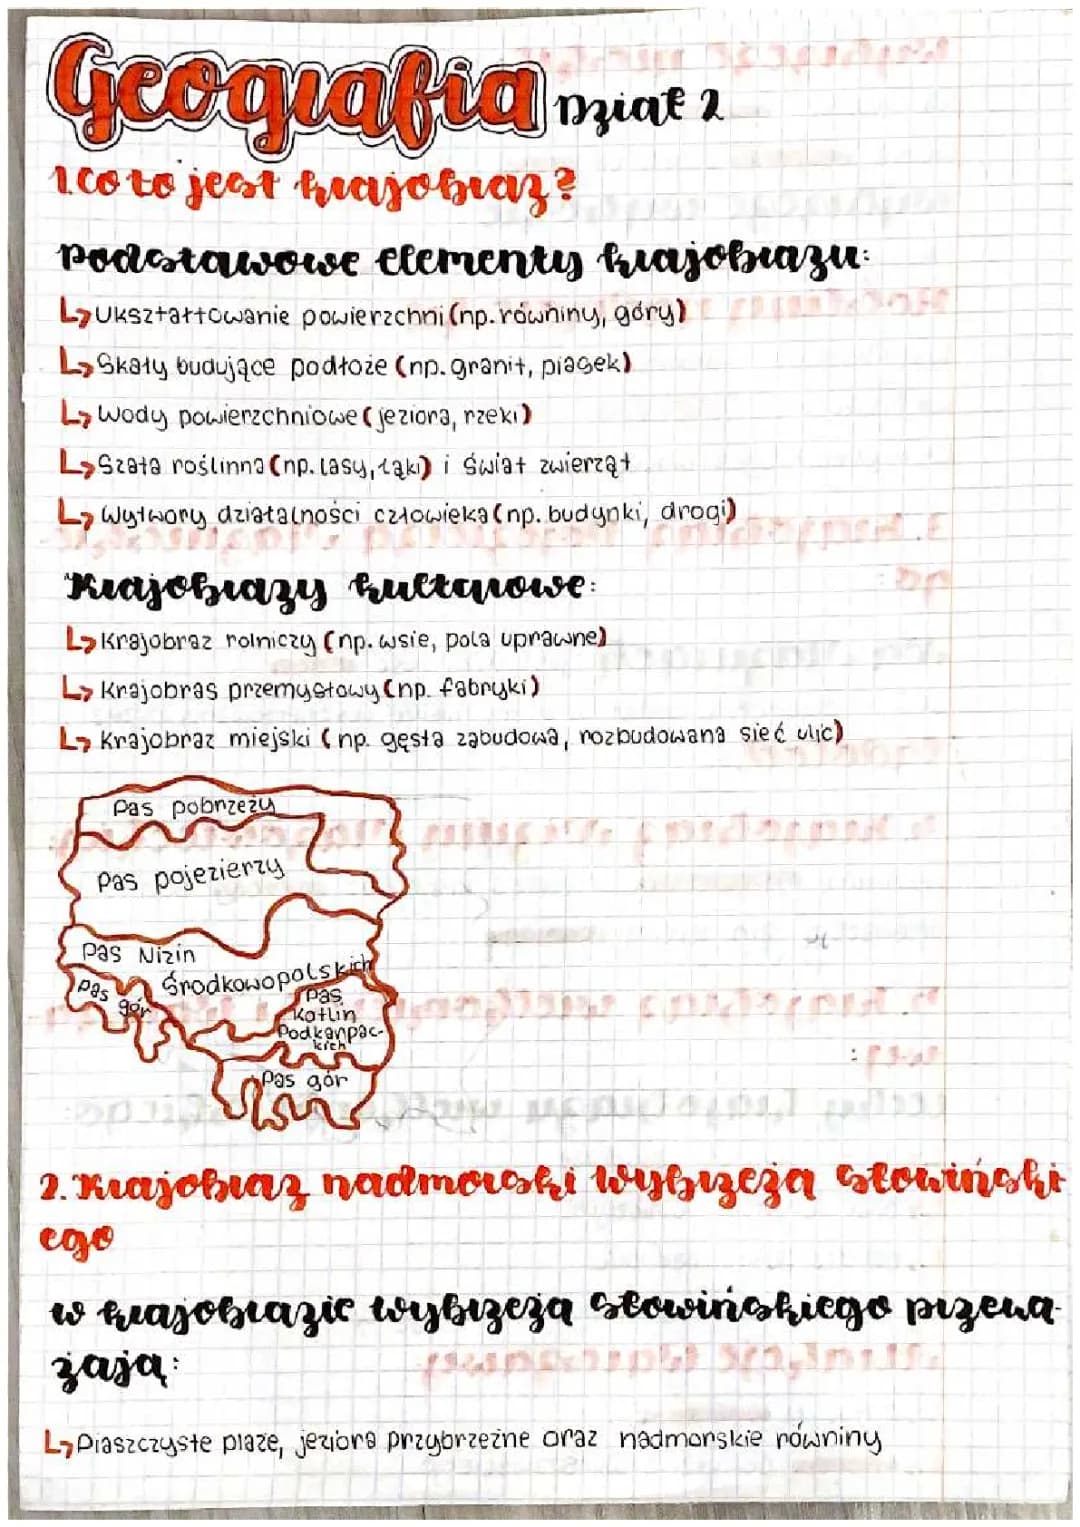 Geografia Dział 2
1. Co to jest krajobraz?
Podstawowe elementy krajobrazu:
↳ Ukształtowanie powierzchni (np. równiny, góry)
↳ Skały budujące podłoże (np. granit, piasek)
↳ Wody powierzchniowe (jeziora, rzeki)
↳ Szata roślinna (np. lasy, łąki) i świat zwierząt
↳ Wytwory działalności człowieka (np. budynki, drogi)
Krajobrazy kulturowe:
↳ Krajobraz rolniczy (np. wsie, pola uprawne)
↳ Krajobras przemysłowy (np. fabryki)
↳ Krajobraz miejski (np. gęsta zabudowa, rozbudowana sieć ulic)
Pas pobrzeży
Pas pojezierzy
Pas Nizin
Środkowopolskich
Pas
gór
Pas
Kotlin
Podkarpac-
kich
Pas gór
2. Krajobraz nadmorski wybrzeża słowiński
ego
w krajobrazie wybrzeża słowińskiego przewa-
żają:
↳ Piaszczyste plaże, jeziora przybrzeżne oraz nadmorskie równiny